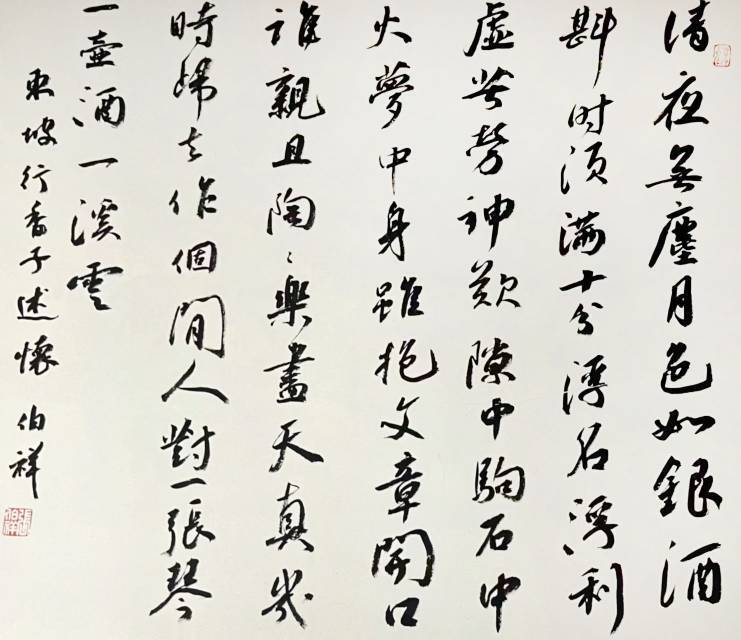 清夜無塵月色如銀酒
斟時須滿十分浮名浮利
虛苦勞神歎隙中駒石中
火夢中身雖抱文章開口
誰親且陶陶樂盡天真幾
時歸去作個閒人對一張琴
一壺酒一溪雲
東坡行香子述懷 伯祥